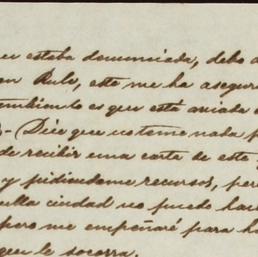 estaba denunciada, debo a
en Rule, este me ha asegura
tambien lo es que está aviada
- Dice que no teme nada p
de recibir una carta de este
y pidiendome recursos, per
ella ciudad no puedo hac
pero me empeñaré para ha
que le socorra.